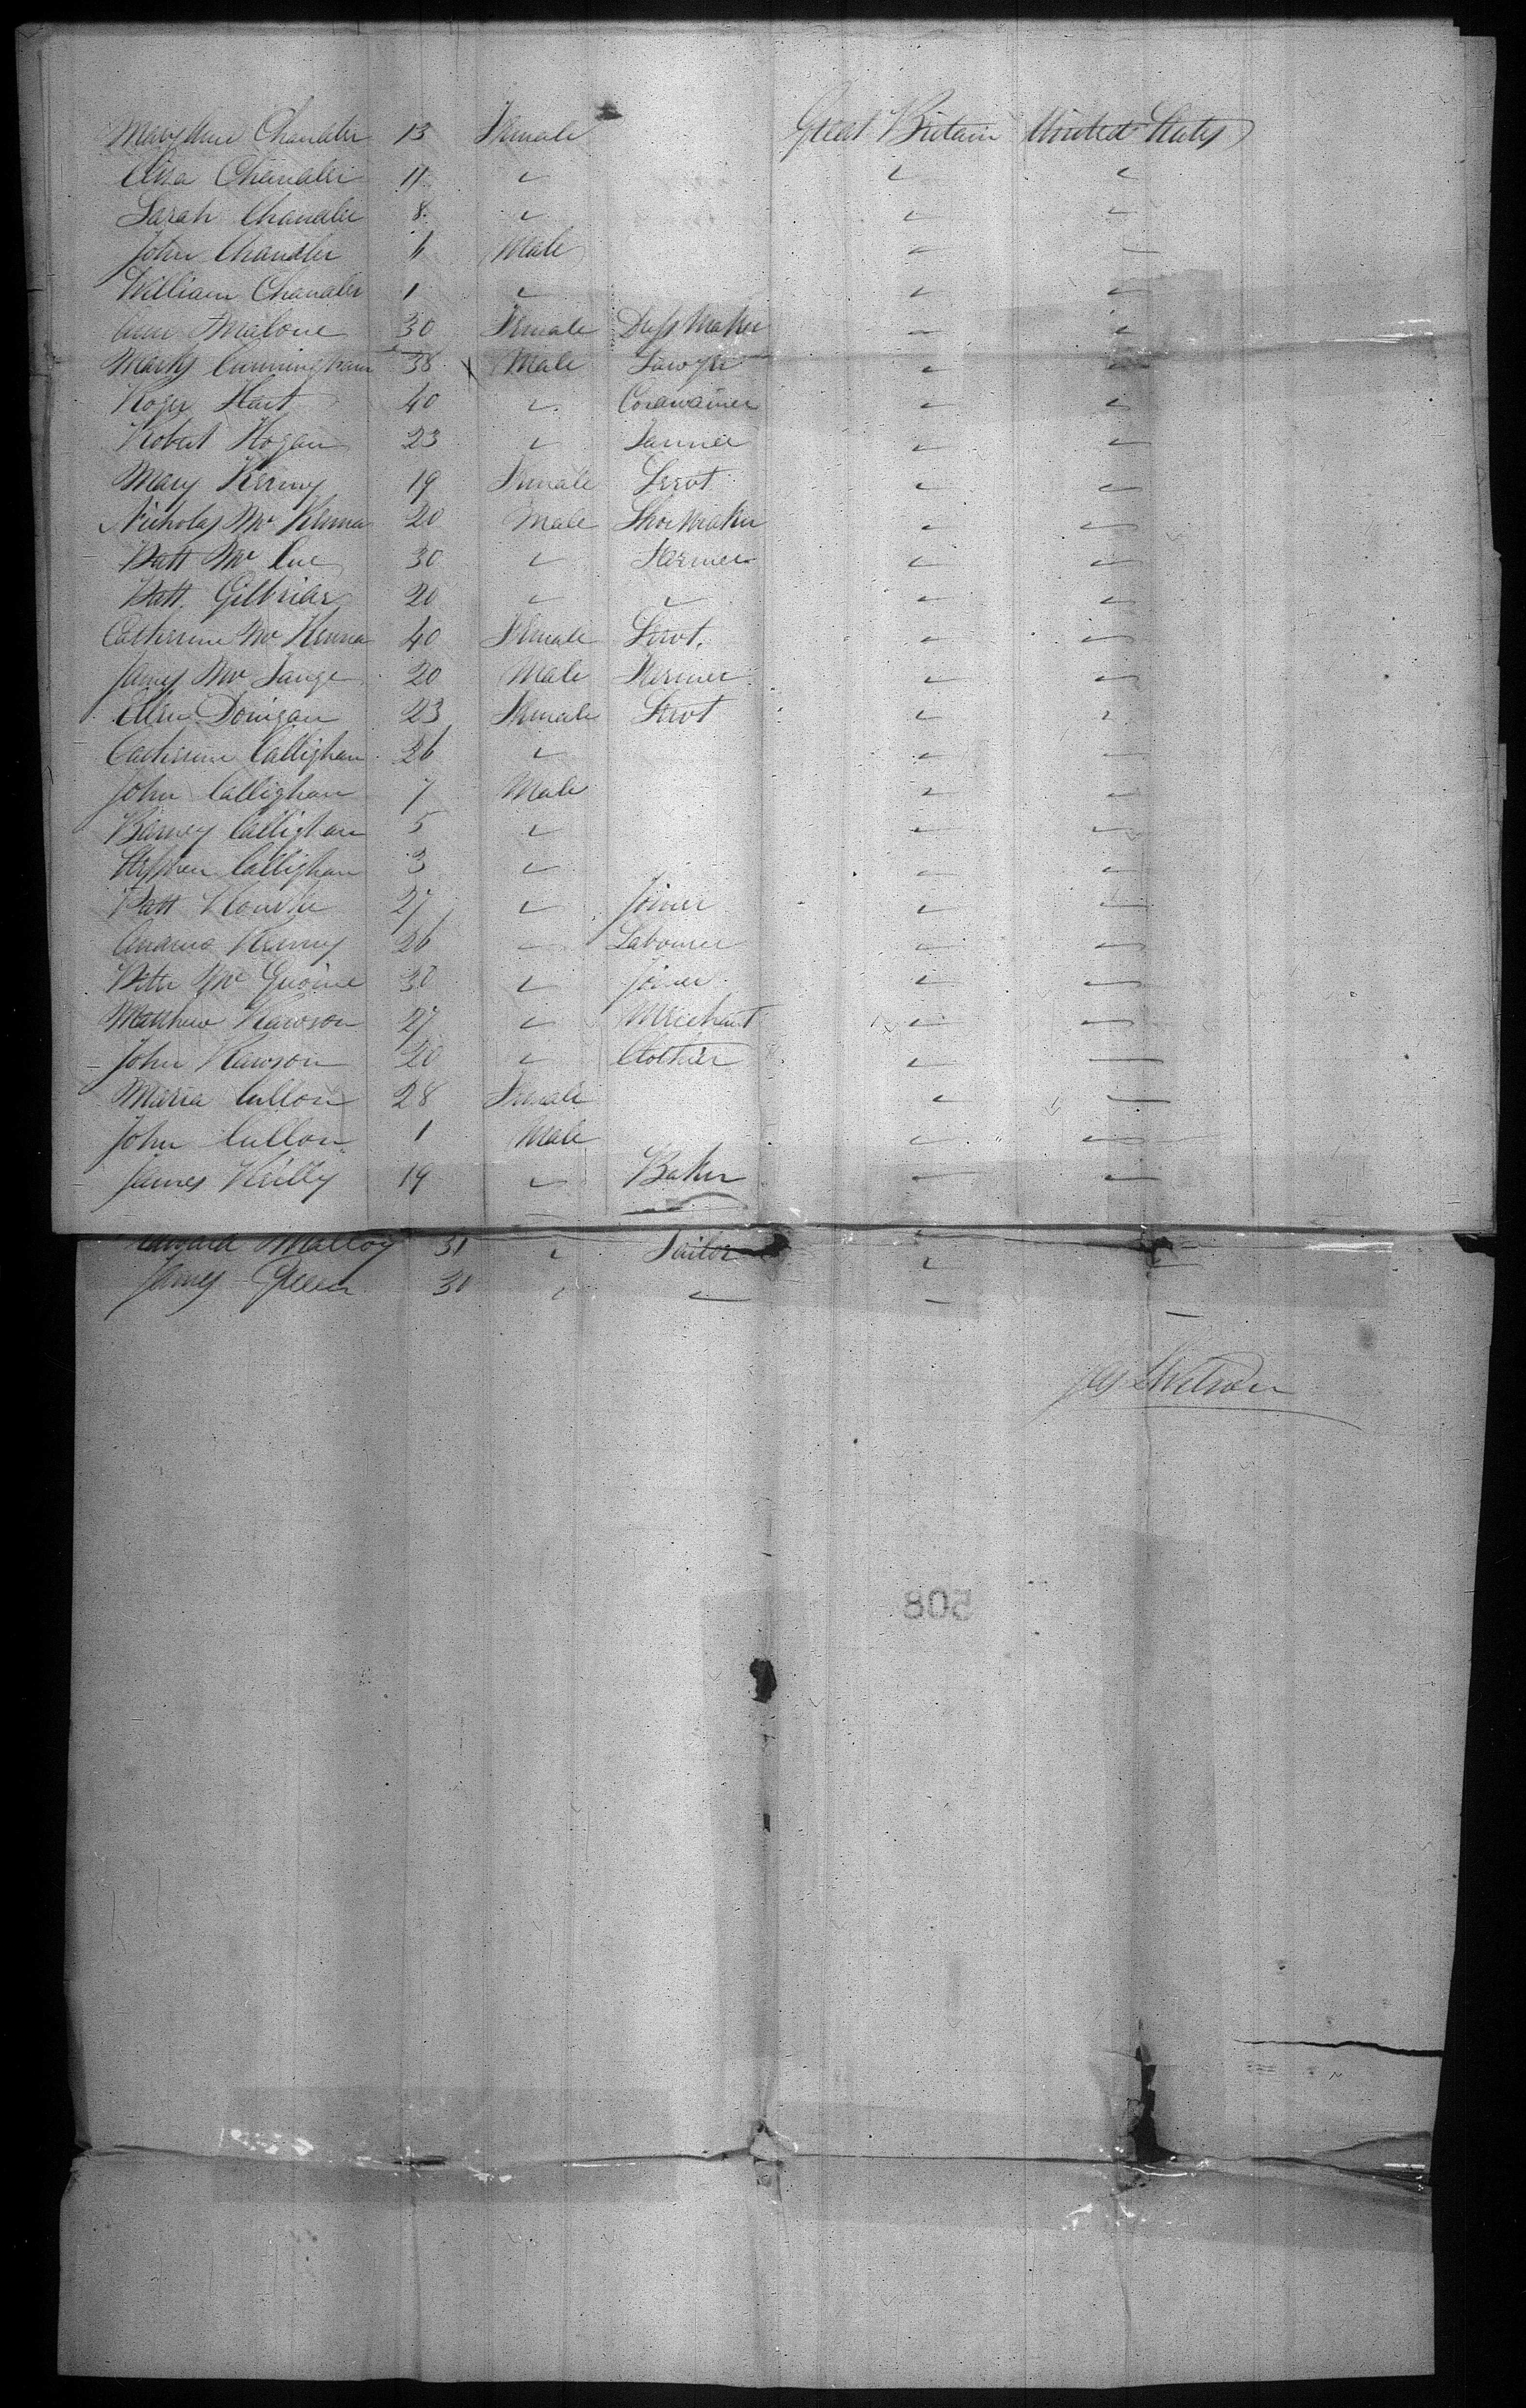 Mary Ann Chandler 13 Female Great Britain United States
Eliza Chandler 11 " " "
Sarah Chandler 8 " " "
John Chandler 6 Male " "
William Chandler 1 " " "
Ann Malone 30 Female Dress Maker " "
Marks Cunningham 38 Male Sawyer " "
Roger Hart 40 " Cordwainer " "
Robert Hogan 23 " Tanner " "
Mary Kerney 19 Female Servt " "
Nicholas Mc Kenna 20 Male Shoe Maker " "
Patt Mc Cue 30 " Farmer " "
Patt 20 " " " "
Catherine Mc Kenna 40 Female Servt. " "
James Mc 20 Male Farmer " "
Ellen Donigan 23 Female Servt " "
Catherine Callighan 26 " " "
John Callighan 7 Male " "
Barney Callighan 5 " " "
Stephen Callighan 3 " " "
Patt Rourke 27 " Joiner " "
Andrew Kenny 26 " Labourer " "
Peter Mc 30 " Joiner " "
Matthew Rawson 27 " Merchant " "
John Rawson 20 " Clothier " "
Maria Cullon 28 Female " "
John Cullon 1 Male " "
James Reilly 19 " Baker " "
Edward Malloy 31 " Tailor " "
James Green 30 " " " "
Jas. Wilson
508